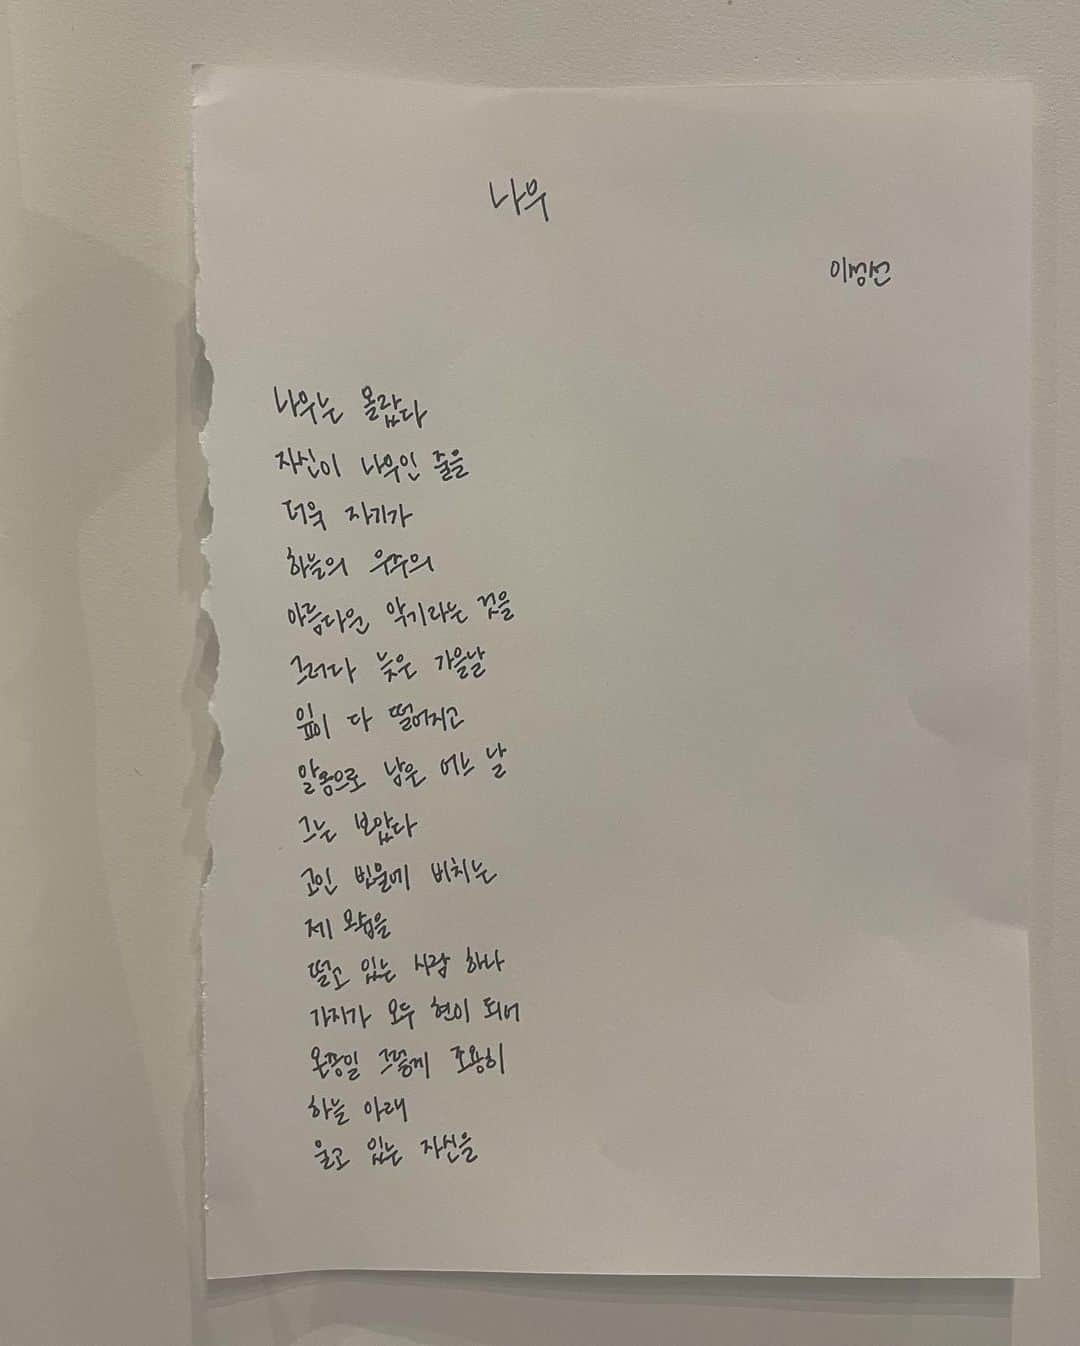 나무
이성선
나무는 몰랐다
자신이 나무인 줄을
더욱 자기가
하늘의 우주의
아름다운 악기라는 것을
그러다 늦은 가을날
잎이 다 떨어지고
알몸으로 남은 어느 날
그는 보았다
고인 빗물에 비치는
제 모습을
떨고 있는 사람 하나
가지가 모두 현이 되어
온종일 그렇게 조용히
하늘 아래
울고 있는 자신을